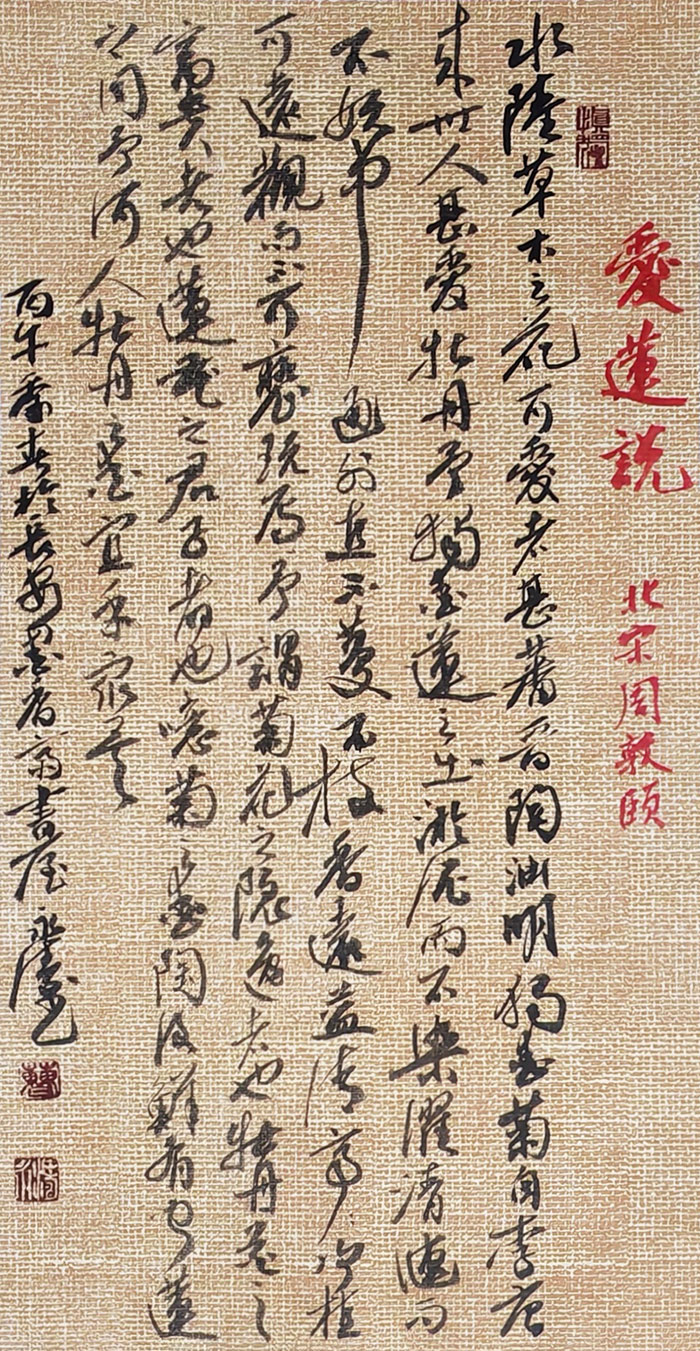 愛蓮說 北宋周敦頤
水陸草木之花可愛者甚蕃晉陶淵明獨愛菊自李唐
来世人甚愛牡丹予獨愛蓮之出淤泥而不染濯清漣而
不妖中通外直不蔓不枝香遠益清亭亭净植
可遠觀而不可褻玩焉予謂菊花之隱逸者也牡丹花之
富貴者也蓮花之君子者也噫菊之愛陶後鮮有聞蓮
之同予何人牡丹之愛宜乎眾矣
丙午季春於長安墨香齋書屋